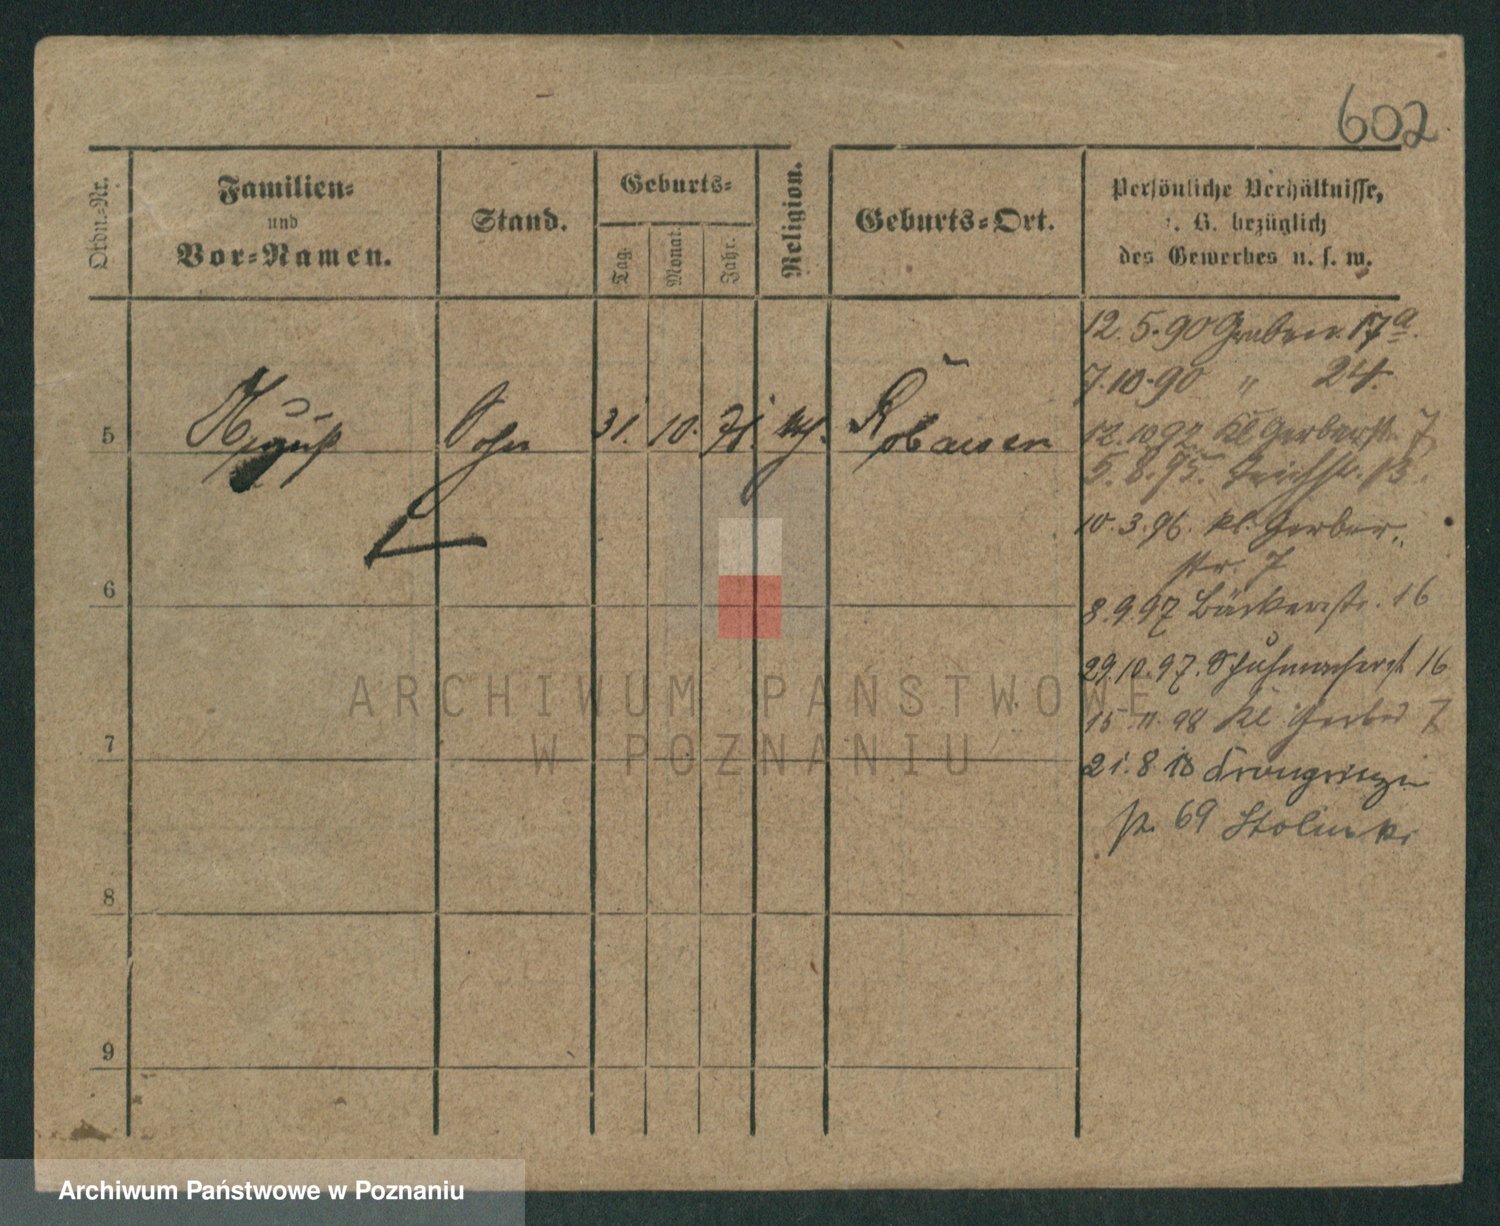 602
Ordn.-Nr.
Familien-
und
Vor-Namen.
Stand.
Geburts-
Tag.
Monat.
Jahr.
Religion.
Geburts-Ort.
Persönliche Verhältnisse,
z. B. bezüglich
des Gewerbes u. s. w.
12. 5. 90 Graben 17a.
7. 10. 90 " 24.
5 Sohn 31. 10. 71.
12. 10 92 Kl Gerberstr. 7
5. 8. 95. Teichstr. 13.
10. 3. 96. Kl. Gerber-
str. 7
6
8. 9. 97 Bäckerstr. 16
29. 10. 97. Schuhmacherst 16
15 11. 98 Kl Gerber 7
7
21. 8 18 Kronprinzen
str. 69
8
9
ARCHIWUM PAŃSTWOWE
W POZNANIU
Archiwum Państwowe w Poznaniu